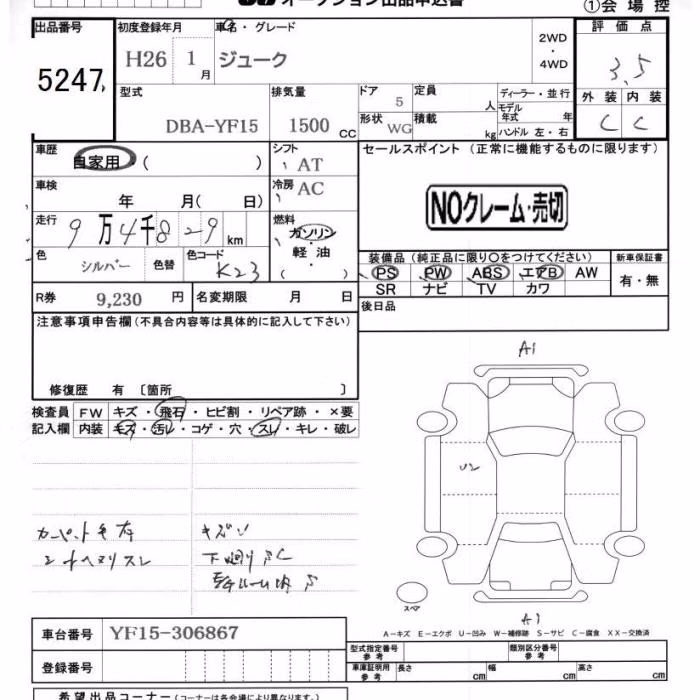 オークション出品申込書
①会場控
出品番号
5247
初度登録年月
H26 1月
車名・グレード
ジューク
2WD
・
4WD
評価点
3.5
外装 内装
C C
型式
DBA-YF15
排気量
1500 CC
ドア 5
形状 WG
定員 人
積載 kg
ディーラー・並行
モデル年式 年
ハンドル 左・右
車歴
自家用・( )
シフト
AT
セールスポイント (正常に機能するものに限ります)
車検
年 月( 日)
冷房 AC
NOクレーム・売切
走行
9万4千829km
燃料
ガソリン
軽油
色
シルバー
色替
色コード
K23
装備品(純正品に限り○をつけてください)
新車保証書
PS PW ABS エアB AW
有・無
SR ナビ TV カワ
R券 9,230 円
名変期限 月 日
後日品
注意事項申告欄(不具合内容等は具体的に記入して下さい)
修復歴 有 〔箇所 〕
検査員
記入欄
FW キズ・飛石・ヒビ割・リペア跡・×要
内装 キズ・汚レ・コゲ・穴・スレ・キレ・破レ
A1
U2
キズ
下廻り
スペア
A1
A-キズ E-エクボ U-凹み W-補修跡 S-サビ C-腐食 XX-交換済
車台番号 YF15-306867
登録番号
型式指定番号
参考
類別区分番号
参考
車庫証明用
参考
長さ cm 幅 cm 高さ cm
希望出品コーナー(コーナーは各会場により異なります。)